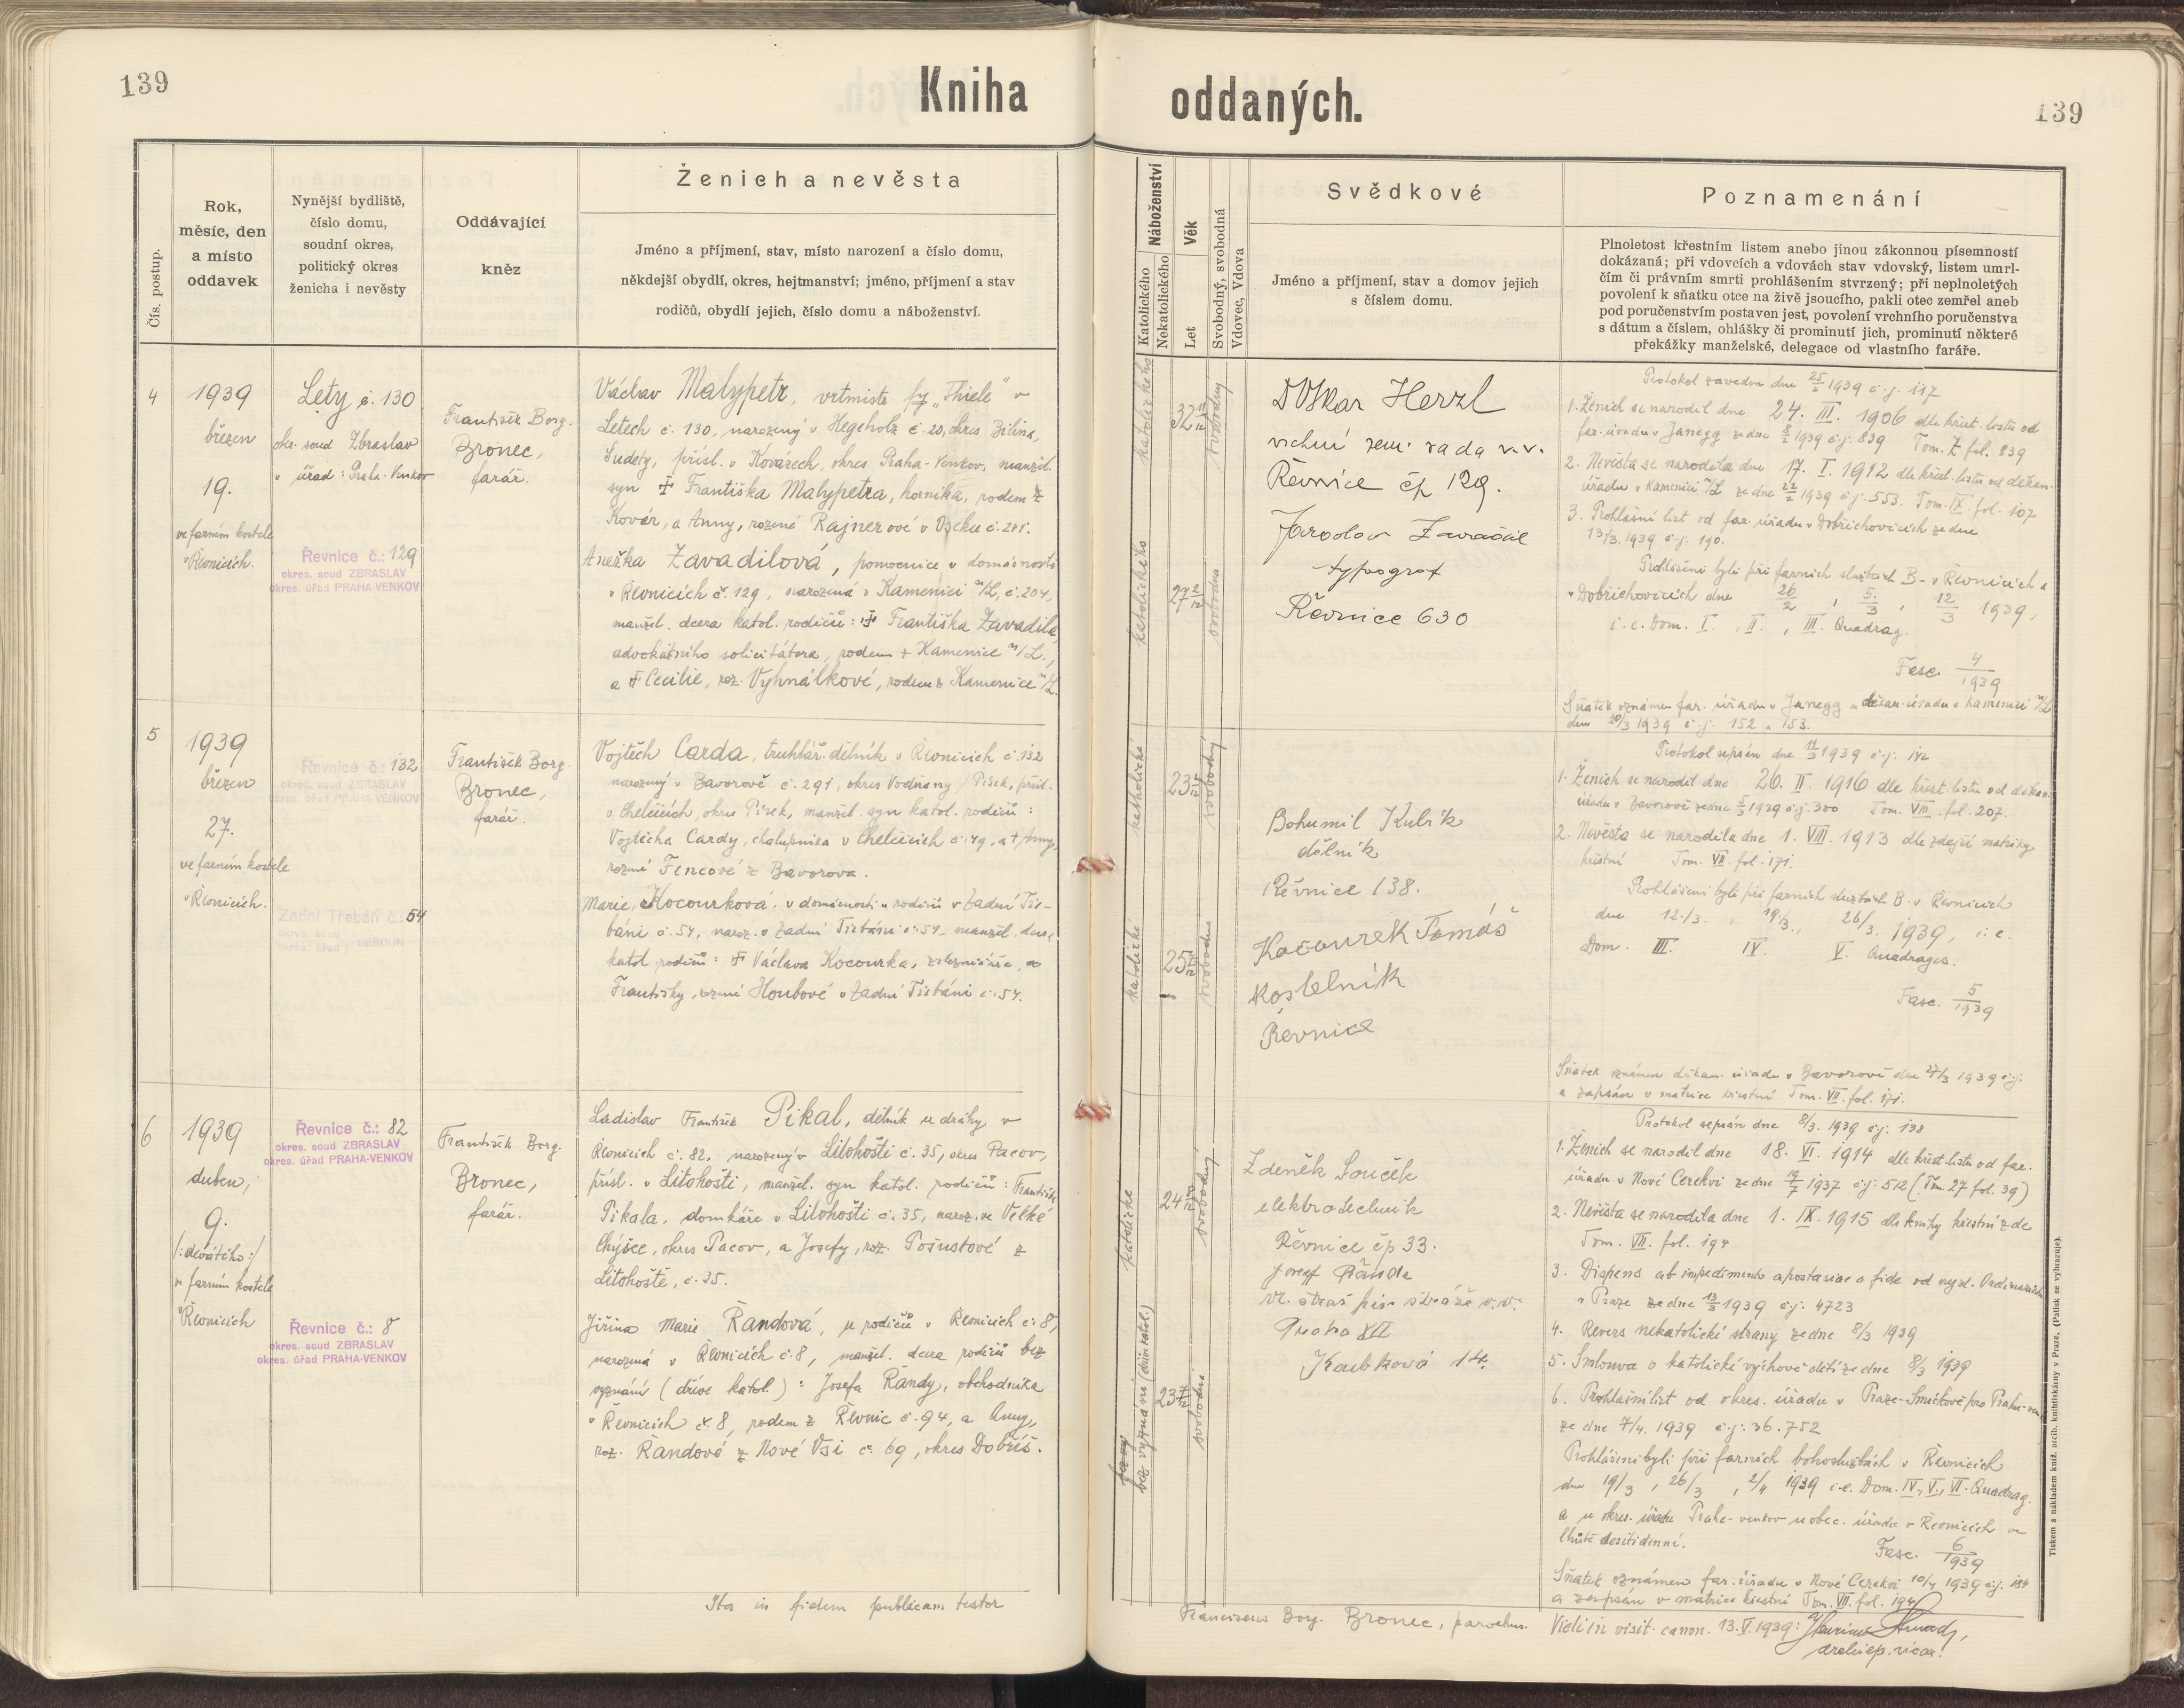 139
Kniha
oddaných.
139
Čís. postup.
Rok,
měsíc, den
a místo
oddavek
Nynější bydliště,
číslo domu,
soudní okres,
politický okres
ženicha i nevěsty
Oddávající
kněz
Ženich a nevěsta
Jméno a příjmení, stav, místo narození a číslo domu,
někdejší obydlí, okres, hejtmanství; jméno, příjmení a stav
rodičů, obydlí jejich, číslo domu a náboženství.
Náboženství
Katolického
Nekatolického
Věk
Let
Svobodný, svobodná
Vdovec, Vdova
Svědkové
Jméno a příjmení, stav a domov jejich
s číslem domu.
Poznamenání
Plnoletost křestním listem anebo jinou zákonnou písemností
dokázaná; při vdovcích a vdovách stav vdovský, listem umrl-
čím či právním smrti prohlášením stvrzený; při neplnoletých
povolení k sňatku otce na živě jsoucího, pakli otec zemřel aneb
pod poručenstvím postaven jest, povolení vrchního poručenstva
s dátum a číslem, ohlášky či prominutí jich, prominutí některé
překážky manželské, delegace od vlastního faráře.
4
1939
březen
19.
ve farním kostele
v Řevnicích.
Lety č. 130
okr. soud Zbraslav
" úřad: Praha-Venkov
Řevnice č.: 129
okres. soud ZBRASLAV
okres. úřad PRAHA-VENKOV
František Borg.
Bronec,
farář.
Václav Malypetr, vrtmistr fy „Thiele" v
Letech č. 130, narozený v Hegeholz č. 20, okres Bílina,
Sudety, přísl. v Kovárech, okres Praha-Venkov, manžel.
syn ‡ Františka Malypetra, horníka, rodem z
Kovár, a Anny, rozené Rajnerové v Oseku č. 281.
Anežka Zavadilová, pomocnice v domácnosti
v Řevnicích č. 129, narozená v Kamenici n/L, č. 204,
manžel. dcera katol. rodičů: ‡ Františka Zavadila,
advokátního solicitátora, rodem z Kamenice n/L.,
a ‡ Cecilie, roz. Vyhnálkové, rodem z Kamenice n/L
katolického
32
svobodný
katolického
27 2/12
svobodná
Oskar Herzl
vrchní zem. rada v.v.
Řevnice čp 129.
Jaroslav Zavadil
typograf
Řevnice 630
Protokol zaveden dne 25/2 1939 č.j. 117
1. Ženich se narodil dne 24. III. 1906 dle křest. listu od
far. úřadu v Janegg ze dne 8/2 1939 č.j. 839 Tom. Z fol. 839
2. Nevěsta se narodila dne 17. I. 1912 dle křest. listu od děkan.
úřadu v Kamenici n/L ze dne 22/2 1939 č.j. 553. Tom. IX. fol. 107
3. Prohlášní list od far. úřadu v Dobřichovicích ze dne
13/3. 1939 č.j. 190.
Prohlášeni byli při farních službách B- v Řevnicích a
v Dobřichovicích dne 26/2, 5./3, 12/3 1939,
i. e. Dom. I., II., III. Quadrag.
Fasc. 4/1939
Sňatek oznámen far. úřadu v Janegg a děkan. úřadu v Kamenici n/L
dne 20/3 1939 č.j. 152 a 153.
5
1939
březen
27.
ve farním kostele
v Řevnicích.
Řevnice č.: 132
okres. soud ZBRASLAV
okres. úřad PRAHA-VENKOV
Zadní Třebáň č.: 54
okres. soud
okres. úřad BEROUN
František Borg.
Bronec,
farář.
Vojtěch Carda, truhlář. dělník v Řevnicích č. 132
narozený v Bavorově č. 291, okres Vodňany / Písek, přísl.
v Chelčicích, okres Písek, manžel. syn katol. rodičů:
Vojtěcha Cardy, chalupníka v Chelčicích č. 49, a † Anny,
rozené Fencové z Bavorova.
Marie Kocourková, v domácnosti u rodičů v Zadní Tře-
báni č. 54, naroz. v Zadní Třebáni č. 54, manžel. dcera
katol. rodičů: ‡ Václava Kocourka, železničáře, a
Františky, rozené Houbové v Zadní Třebáni č. 54.
katholické
23 1/12
svobodný
katolické
25
svobodná
Bohumil Kubík
dělník
Řevnice 138.
Kocourek Tomáš
kostelník
Řevnice
Protokol sepsán dne 11/3 1939 č.j. 142
1. Ženich se narodil dne 26. II. 1916 dle křest. listu od děkan.
úřadu v Bavorově ze dne 5/3 1939 č.j. 300 Tom. VIII. fol. 207.
2. Nevěsta se narodila dne 1. VIII. 1913 dle zdejší matriky
křestní Tom. VII fol. 171.
Prohlášeni byli při farních službách B. v Řevnicích
dne 12./3., 19./3., 26/3. 1939, i. e.
Dom. III. IV. V. Quadrages.
Fasc. 5/1939
Sňatek oznámen děkan. úřadu v Bavorově dne 27/3 1939 č.j.
a zapsán v matrice křestní Tom. VII. fol. 171.
6
1939
duben,
9.
/:devátého:/
ve farním kostele
v Řevnicích
Řevnice č.: 82
okres. soud ZBRASLAV
okres. úřad PRAHA-VENKOV
Řevnice č.: 8
okres. soud ZBRASLAV
okres. úřad PRAHA-VENKOV
František Borg.
Bronec,
farář.
Ladislav František Pikal, dělník u dráhy v
Řevnicích č. 82, narozený v Litohošti č. 35, okres Pacov,
přísl. v Litohošti, manžel. syn katol. rodičů: Františka
Pikala, domkáře v Litohošti č. 35, naroz. ve Velké
Chýšce, okres Pacov, a Josefy, roz. Pošustové z
Litohoště, č. 35.
Jiřina Marie Řandová, u rodičů v Řevnicích č. 8,
narozená v Řevnicích č. 8, manžel. dcera rodičů bez
vyznání (dříve katol.): Josefa Řandy, obchodníka
v Řevnicích č. 8, rodem z Řevnic č. 94, a Anny,
roz. Řandové z Nové Vsi č. 69, okres Dobříš.
katolické
24
svobodný
bez vyznání (dříve katol.)
23 7/12
svobodná
Zdeněk Souček
elektrotechnik
Řevnice čp 33.
Josef Řanda
vr. stráž. fin. stráže v.v.
Praha XII
Koubkova 14.
Protokol sepsán dne 8/3. 1939 č.j. 138
1. Ženich se narodil dne 18. VI. 1914 dle křest. listu od far.
úřadu v Nové Cerekvi ze dne 19/7 1937 č.j. 512 (Tom. 27 fol. 39)
2. Nevěsta se narodila dne 1. IX. 1915 dle knihy křestní zde
Tom. VII. fol. 194
3. Dispens ab impedimento apostasiae a fide od nejd. Ordinariátu
v Praze ze dne 13/3 1939 č.j. 4723
4. Revers nekatolické strany ze dne 8/3 1939
5. Smlouva o katolické výchově dětí ze dne 8/3 1939
6. Prohlášní list od okres. úřadu v Praze-Smíchově pro Prahu-ven.
ze dne 7/4. 1939 č.j. 36.752
Prohlášeni byli při farních bohoslužbách v Řevnicích
dne 19/3, 26/3, 2/4 1939 i. e. Dom. IV., V., VI. Quadrag.
a u okres. úřadu Praha-venkov u obec. úřadu v Řevnicích ve
lhůtě desítidenní.
Fasc. 6/1939
Sňatek oznámen far. úřadu v Nové Cerekvi 10/4 1939 č.j. 184
a zapsán v matrice křestní Tom. VII. fol. 194
Ita in fidem publicam testor
Franciscus Borg. Bronec, parochus.
Vidi in visit. canon. 13. V. 1939:
archiep. vicar.
Tiskem a nákladem kníž. arcib. knihtiskárny v Praze. (Patisk se vyhrazuje).